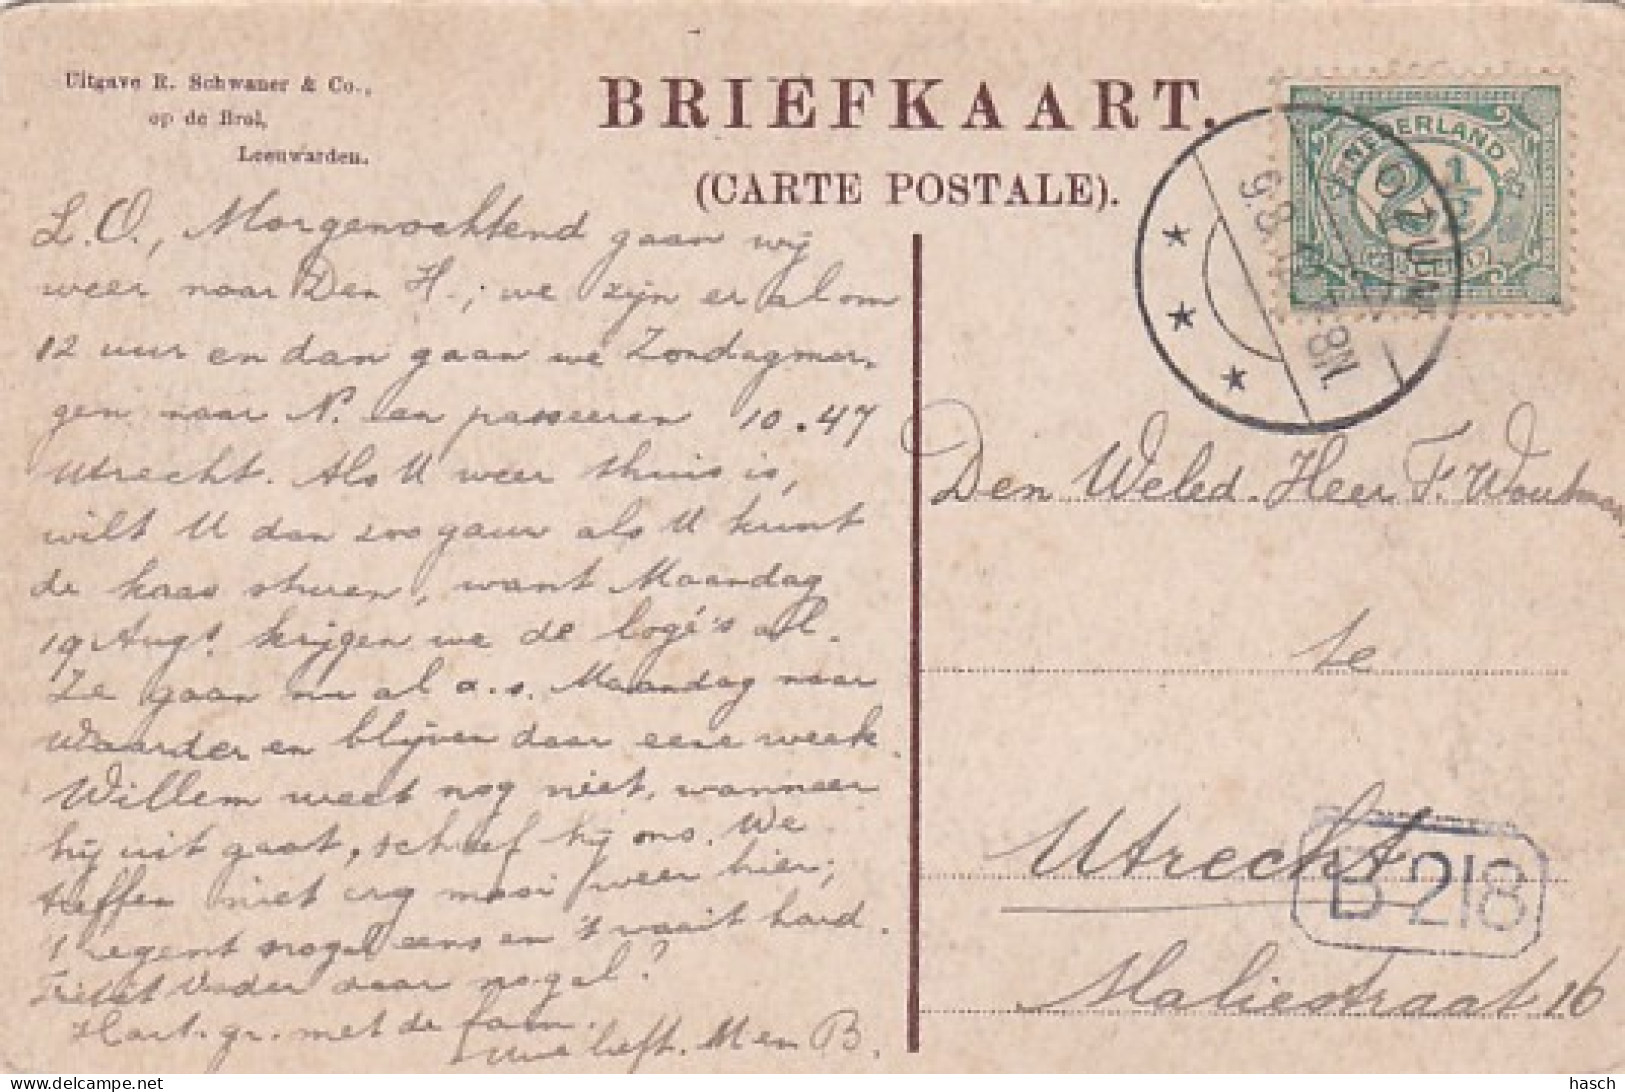 Uitgave R. Schwaner & Co.,
op de Brol,
Leeuwarden.
BRIEFKAART.
(CARTE POSTALE).
NEDERLAND
2½
9.8.
7-8N.
L.O., Morgenochtend gaan wij
weer naar Den H.; we zijn er al om
12 uur en dan gaan we Zondagmor-
gen naar N. en passeeren 10.47
Utrecht. Als U weer thuis is,
wilt U dan zoo gauw als U kunt
de kaas sturen, want Maandag
19 Augt krijgen we de logé's al.
Ze gaan nu al a.s. Maandag naar
Waarder en blijven daar eene week.
Willem weet nog niet, wanneer
hij uit gaat, schreef hij ons. We
treffen niet erg mooi weer hier;
't regent nogal eens en 't waait hard.
Vader daar nogal?
Hart. gr. met de fam.
Uwe liefh. M en B.
Den Weled. Heer F. Woutman
te
Utrecht
B 218
Maliestraat 16
hasch